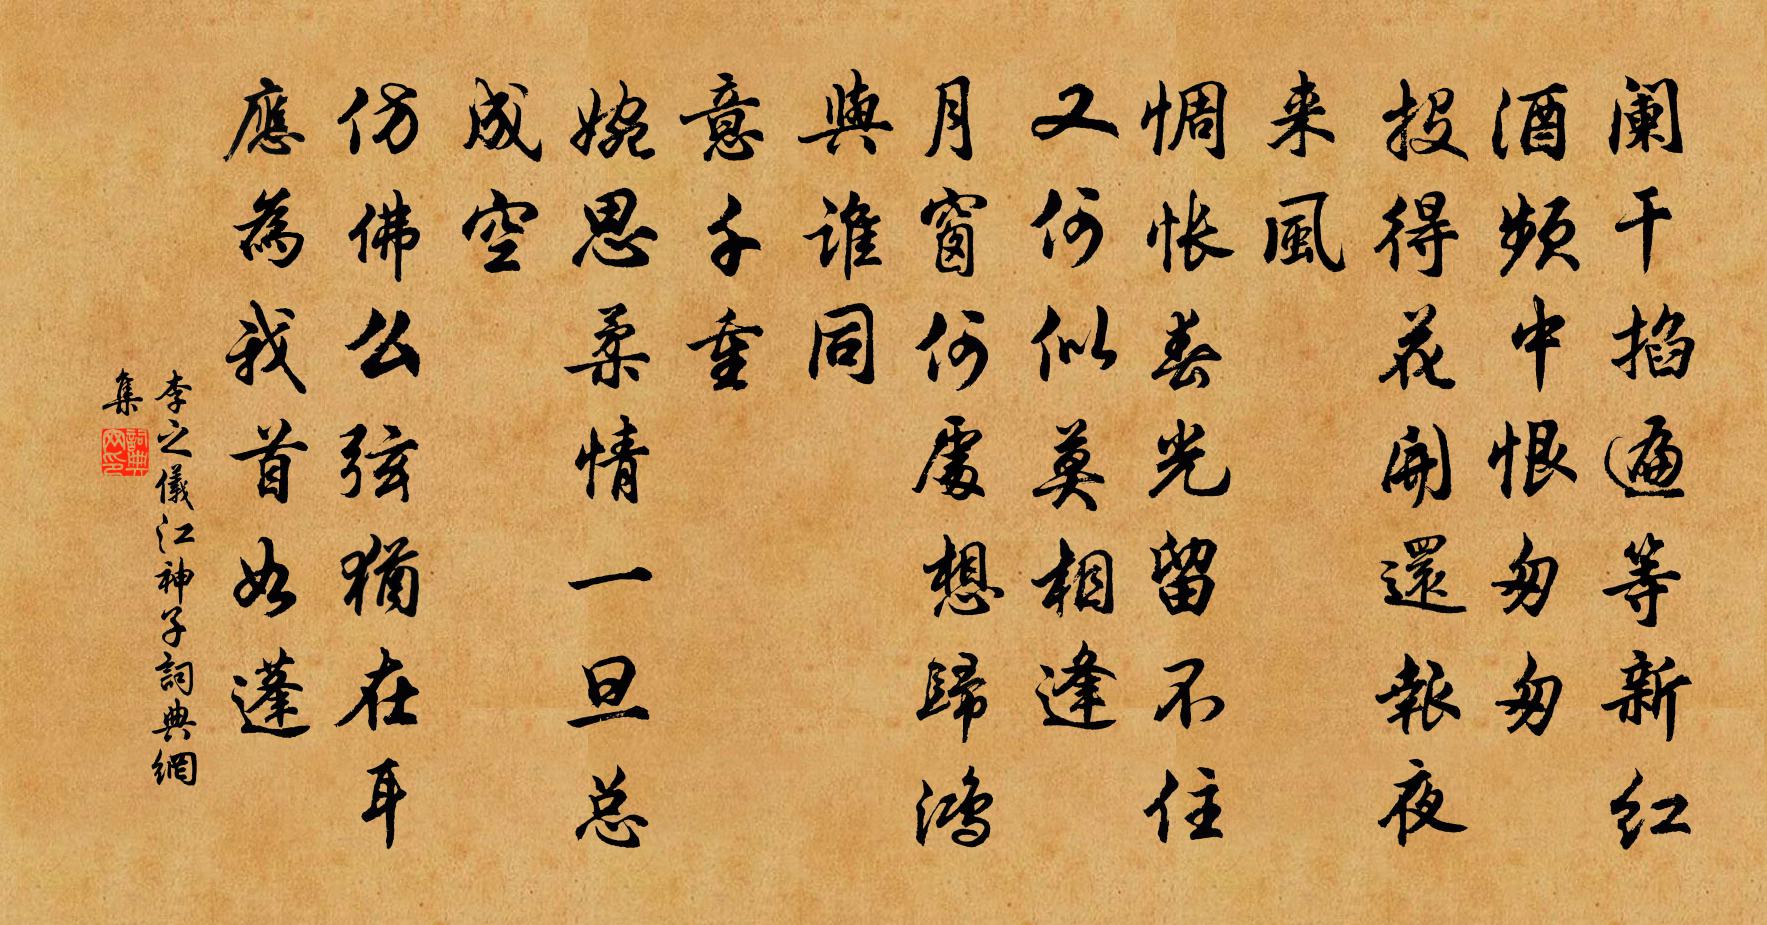 阑干掐遍等新红
酒频中恨匆匆
投得花開還報夜
来風
惆怅春光留不住
又何似莫相逢
月窗何處想歸鸿
與誰同
意千重
婉思柔情一旦总
成空
仿佛么弦猶在耳
應為我首如蓬
李之儀江神子詞典網
集
詞典网印